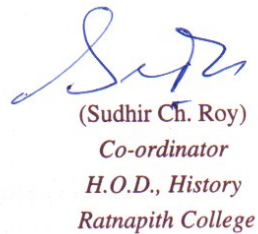 (Sudhir Ch. Roy)
Co-ordinator
H.O.D., History
Ratnapith College